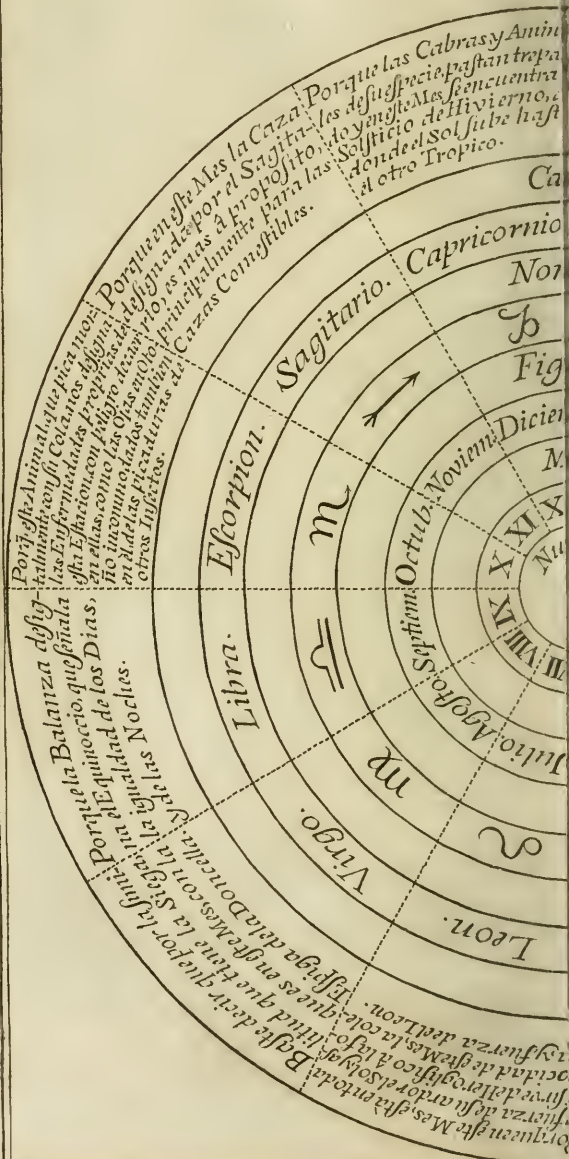 Porque las Cabras y Amin
les de ſu eſpecie, paſtan trepa
do, y en eſte Mes ſe encuentra
Solſticio de Hivierno,
donde el Sol ſube haſt
el otro Tropico.
Porque en eſte Mes la Caza
deſignada por el Sagita-
rio, es mas â propoſito,
principalmente para las
Cazas Comeſtibles.
Porq̃ eſte Animal, que pica mor-
talmente con ſu Cola, nos deſigna
las Enfermedades proprias de
eſta Eſtacion, con peligro de caer
en ellas, como las Ojas en Oto-
ño incommodados tambien
en èl, de las picaduras de
otros Inſectos.
Porque la Balanza deſig-
na el Equinoccio, que ſeñala
la igualdad de los Dias,
y de las Noches.
Baſte decir que por la ſimi-
litud que tiene la Siega,
que es en eſte Mes, con la
Eſpiga de la Doncella.
Porque en eſte Mes, eſtà en toda
fuerza de ſu ardor el Sol, y
ſirve de Ieroglifico â la fo-
cidad de eſte Mes, la cole-
y fuerza de el Leon.
Ca
Capricornio
Sagitario.
Eſcorpion.
Libra.
Virgo.
Leon.
Nom
♑
♐
♏
♎
♍
♌
Fig
Diciem
Noviem.
Octub.
Septiem.
Agoſto.
Julio
M
X
XI
X
IX
VIII
VII
Nu